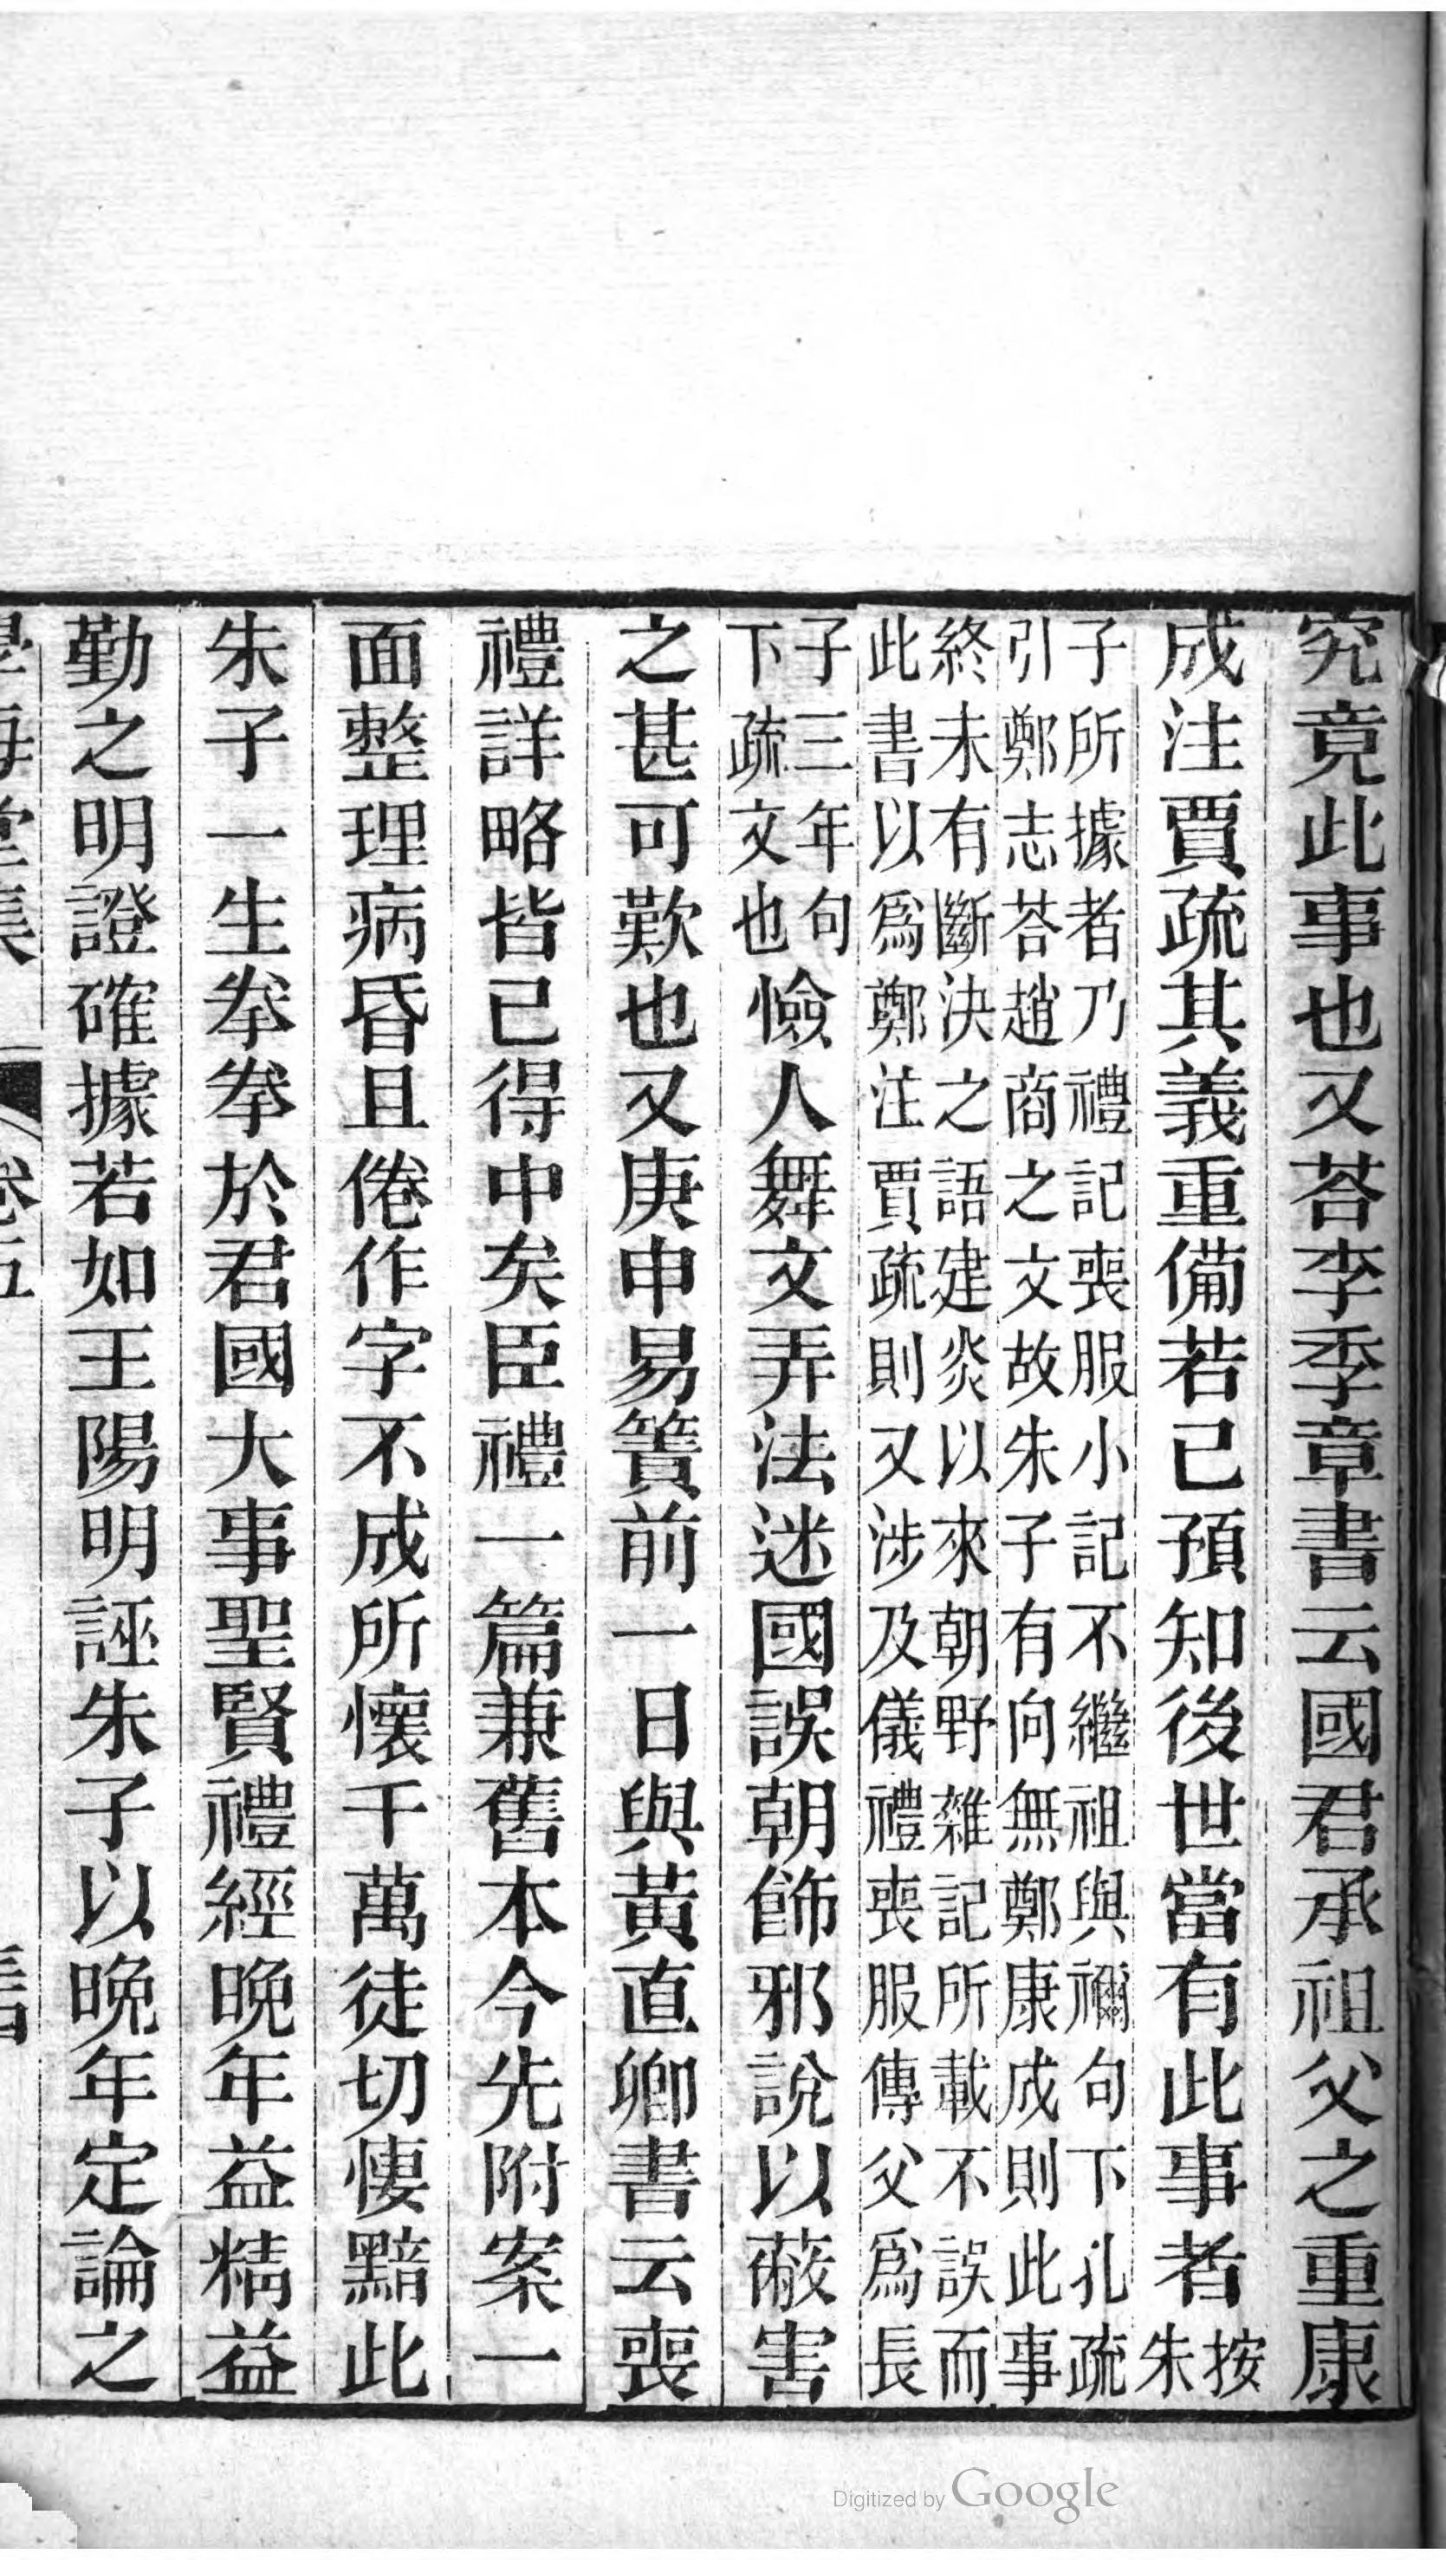 究竟此事也又荅李季章書云國君承祖父之重康
成注賈疏其義重備若已預知後世當有此事者按朱
子所據者乃禮記喪服小記不繼祖與禰句下孔疏
引鄭志荅趙商之文故朱子有向無鄭康成則此事
終未有斷決之語建炎以來朝野雜記所載不誤而
此書以爲鄭注賈疏則又涉及儀禮喪服傳父爲長
子三年句
下疏文也
憸人舞文弄法迷國誤朝飾邪說以蔽害
之甚可歎也又庚申易簀前一日與黃直卿書云喪
禮詳略皆已得中矣臣禮一篇兼舊本今先附案一
面整理病昏且倦作字不成所懷千萬徒切悽黯此
朱子一生拳拳於君國大事聖賢禮經晚年益精益
勤之明證確據若如王陽明誣朱子以晚年定論之
Digitized by Google